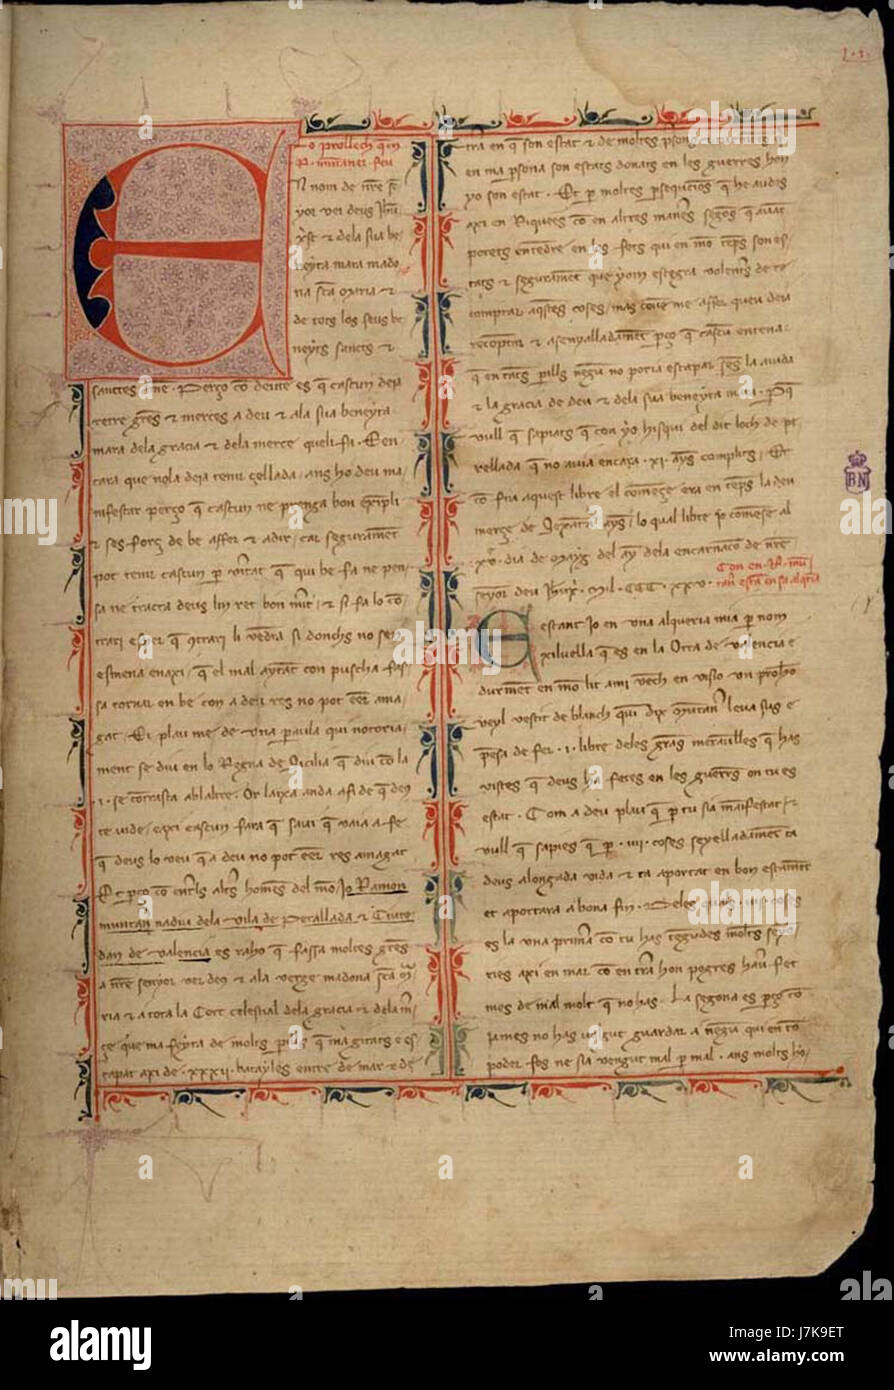 Lo prollech q̃ en
R. mũtaner feu
N nom de nr̃e se
yor ver deus Jh̃u
xp̃st & dela sua be
neyta mara mado
na sc̃a Maria &
de tots los seus be
neyts sancts &
sanctes amẽ. Perço cõ deute es q̃ cascun deja
retre gr̃es & merces a deu & ala sua beneyta
mara dela gracia & dela merce queli fa. E en
cara que nola deja tenir çellada, ans ho deu ma
nifestar perço q̃ cascun ne prenga bon exẽpli
& ses forç de be affer & a dir, car seguramẽt
pot tenir cascun p ṽitat q̃ qui be fa ne pen
sa ne tracta deus lin ret bon mẽt, & si fa lo cõ
trari
esmena enaxi, q̃ el mal aytãt con puscha fas
sa tornar en be con a deu res no pot eẽr ama
gat. Et plau me de una paula qui notoria
ment se diu en lo Regna de Sicilia q̃ diu cõ la
.i. se cõtrasta ab laltre. Or layxa anda a fi de q̃ deu
te vide, axi cascun fara q̃ savi q̃ vaia a fe
q̃ deus lo veu q̃ a deu no pot eẽr res amagat
Et perço cõ entrels altr̃s homẽs del mõ Jo Ramon
muntan̄ nadiu dela vila de Perallada & Ciute
dan de Valencia es raho q̃ fassa moltes gr̃es
a nr̃e senyor ver deu & ala verge madona sc̃a m̃
ria & a tota la Cort celestial dela gracia & dela m̃
çe que ma feyta de molts pills q̃ ma gitats & es
capat axi de .xxxii. batayles entre de mar & de
tr̃a en q̃ son estat & de moltes pson
en ma psona son estats donats en les guerres hon
yo son estat. Et p moltes psequcios q̃ he audes
axi en Riquees cõ en altres man̄es segõs q̃ auãt
porets entẽdre en los fets qui en mõ tẽps son es
tats & seguramẽt que yom estegra volent̃s de re
comptar aq̃stes coses, mas coue me affer queu deia
recõptar & asenyalladamẽt p̃ço q̃ cascu entena
q̃ en tãts pills negu no poria estapar sẽs la aiuda
& la gracia de deu & dela sua beneyta maj. Pq̃
vull q̃ sapiats q̃ con yo hisqui del dit loch de pe
rellada q̃ no auia encara .xi. ãys complits, Et
cõ fiu aquest libre el comẽçe era en tẽps la deu
merçe de lexãta ãys, lo qual libre p comẽse al
xv̊. dia de Mayg del ãy dela encarnacio de nr̃e
seyor deu Jh̃u xp̃. mil. ccc. xxv.
Con en R. mũ
tan̄ estã en sa alqria
Estant Jo en una alqueria mia p nom
xiluella q̃ es en la Orta de Valencia e
durmẽt en mõ lit ami vẽch en visio un prohõ
veyl vestit de blanch qui dix mũtan̄ leva sus e
p̃esa de fer .i. libre deles grãs merauilles q̃ has
vistes q̃ deus ha fetes en les guerr̃s on tu es
estat. Com a deu plau q̃ p tu sia manifestat, &
vull q̃ sapies q̃ p .iiii. coses seyelladamẽt ta
deus alongada vida & ta aportat en bon estamẽt
et aportara a bona fin. Deles quals .iiii. coses
es la una primera cõ tu has tẽgudes molts seyo
ries axi en mar cõ en tr̃a hon pogres hau̯ fet
mes de mal molt q̃ no has. La segona es p̃ço cõ
james no has uulgut guardar a nẽgu qui en tõ
poder fos ne sia vengut mal p mal, ans molts ho
BN
a
alamy
Image ID: J7K9ET
www.alamy.com